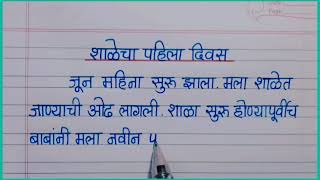 शाळेचा पहिला दिवस
जून महिना सुरु झाला. मला शाळेत
जाण्याची ओढ लागली. शाळा सुरु होण्यापूर्वीच
बाबांनी मला नवीन